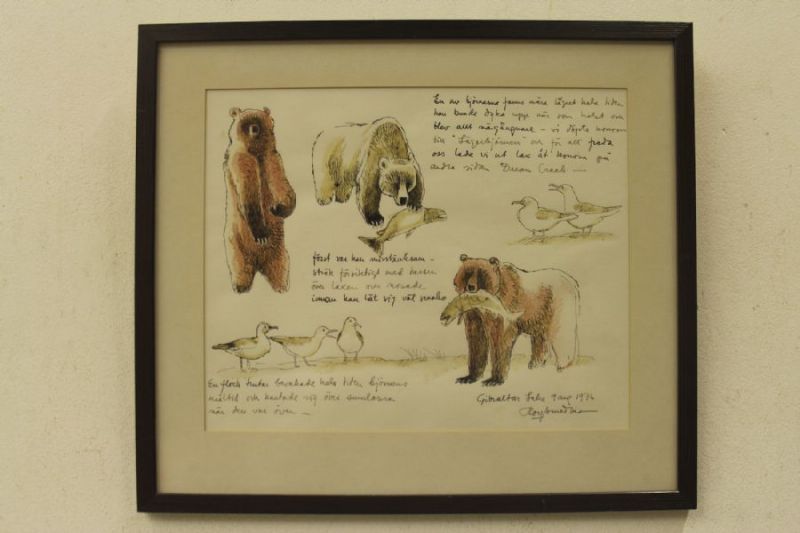 En av björnarna fanns nära lägret hela tiden
han kunde dyka upp när som helst och
blev allt närgångnare – vi döpte honom
till "Lägerbjörnen" och för att freda
oss lade vi ut lax åt honom på
andra sidan Dream Creek —
först var han misstänksam –
strök försiktigt med nosen
över laxen och nosade
innan han lät sig väl smaka
En flock trutar bevakade hela tiden björnens
måltid och kastade sig över smulorna
när den var över —
Gibraltar Lake 9 aug 1976